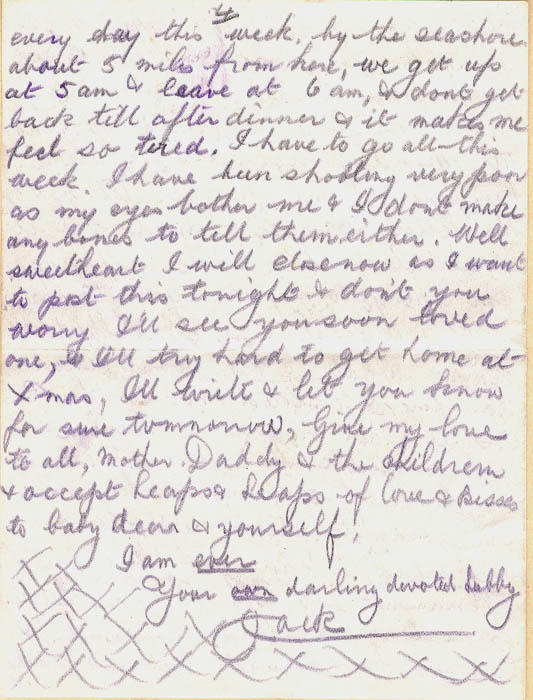 4
every day this week. by the seashore
about 5 miles from here, we get up
at 5am & leave at 6 am, & dont get
back till after dinner & it makes me
feel so tired. I have to go all this
week. I have been shooting very poor
as my eyes bother me & I dont make
any bones to tell them either. Well
sweetheart I will close now as I want
to post this tonight & don't you
worry I'll see you soon loved
one, & I'll try hard to get home at
Xmas, I'll write & let you know
for sure tommorow, Give my love
to all, Mother. Daddy & the children
& accept heaps & heaps of love & kisses
to baby dear & yourself!
I am ever
Your own darling devoted hubby
Jack
X X X X X X X X X X